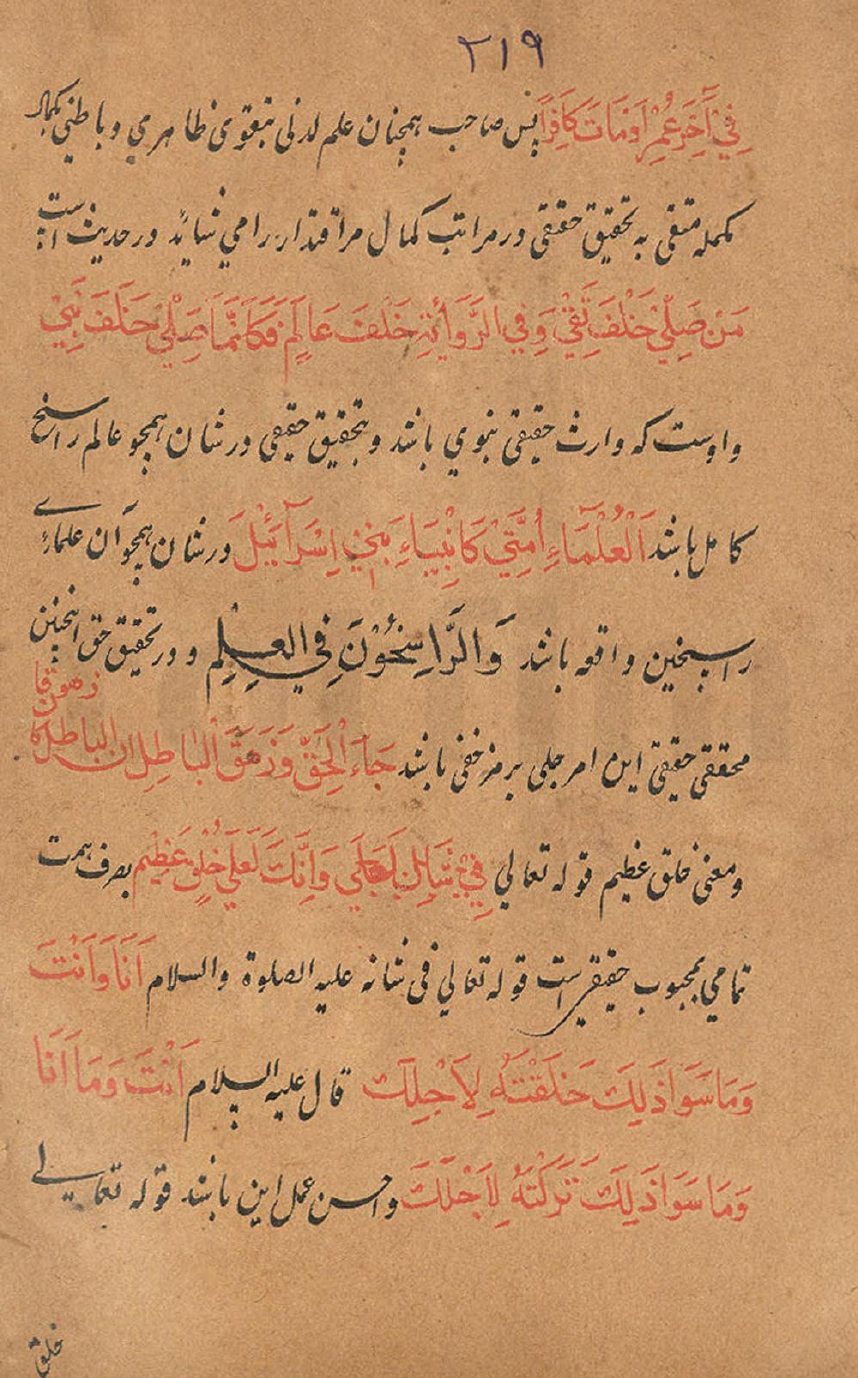 ٢١٩
فِيْ آخِرَ عُمِرِ اَوْمَاتَ كَافِرًا پس صاحب همچنان علم لدنی بتقوی ظاهري وباطني بکمال
مکمله متقی به تحقیق حقیقی در مراتب کمال مراقتدار را می شاید در حدیث است
مَنْ صَلِّيْ خَلْفَ تَّقِيْ وَفِي الرَّوَائَةِ خَلْفَ عَالِمٍ فَكَانَّمَا صَلِّيْ خَلَفَ نَبِيْ
و اوست که وارث حقیقی نبوي باشد و بتحقیق حقیقی در شان همچو عالم راسخ
کامل باشد اَلْعُلْمَاءِ اُمَّتِيْ كَانْبِيَاءِ بَنِيْ اِسْرَآئِيْلَ در شان همچو آن علماءِ
راسخین واقعه باشد وَالرَّاسِخُوْنَ فِي الْعِلْمِ و در تحقیق حق اینچنین
محققی حقیقی این امر جلی بر مز خفی باشد جَاءَ الْحَقُّ وَزَهَقَ الْبَاطِلُ ان الباطل كا
زهوقا
ومعنی خلق عظیم قوله تعالی فِيْ وَاِنَّكَ لَعَلَيٰ خُلْقٍ عَظِيْمِ بصرف همت
تمامي بمحبوب حقیقی است قوله تعالي فی شانه علیه الصلوة والسلام اَنَا وَاَنْتَ
وَمَا سَوَا ذَلِكَ خَلَقْتَهُ لِاَجْلِكَ قال علیه السلام اَنْتَ وَمَا اَنَا
وَمَا سَوَا ذَلِكَ تَرَكْتَهُ لِاَجْلِكَ و احسن عمل این باشد قوله تعالیٰ
خلق